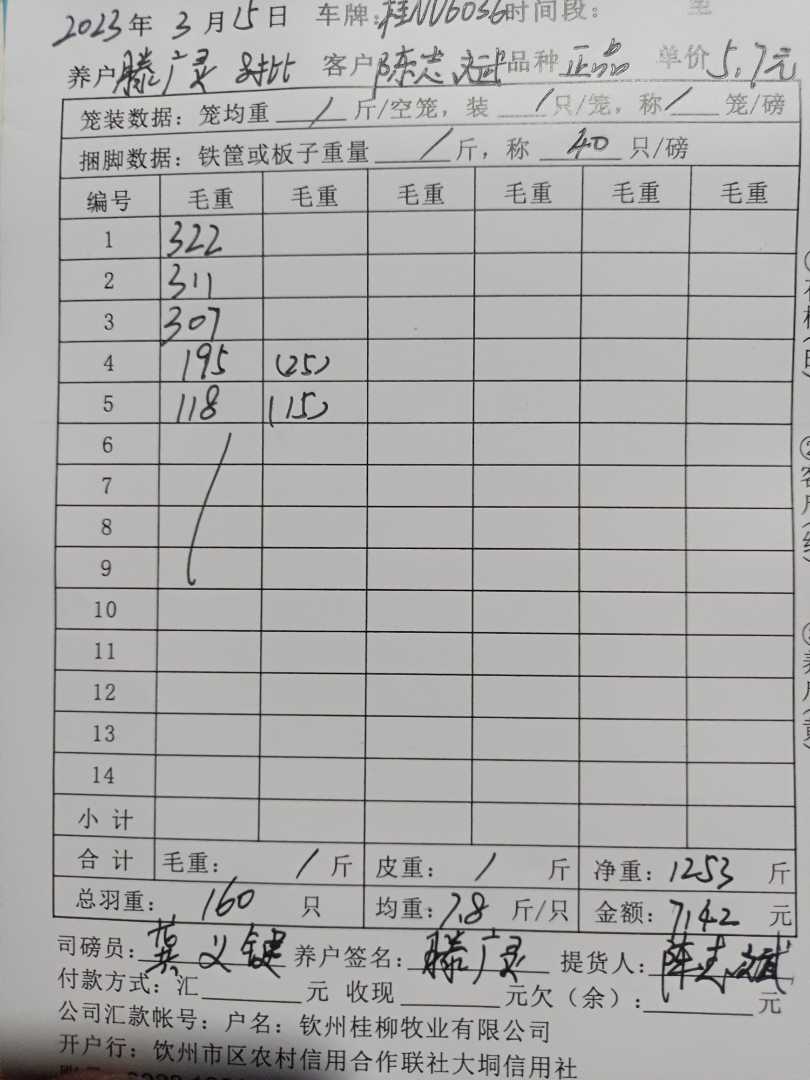 2023年 3月15日 车牌:桂NU6036时间段: 至
养户滕广灵 对比 客户陈志斌品种正品 单价5.7元
笼装数据：笼均重 / 斤/空笼，装 / 只/笼，称 / 笼/磅
捆脚数据：铁筐或板子重量 / 斤，称 40 只/磅
编号 毛重 毛重 毛重 毛重 毛重 毛重
1 322
2 311
3 307
4 195 (25)
5 118 (15)
6
7
8
9
10
11
12
13
14
小计
合计 毛重: / 斤 皮重: / 斤 净重:1253 斤
总羽重: 160 只 均重:7.8 斤/只 金额:7142 元
司磅员: 义键 养户签名:滕广灵 提货人:陈志斌
付款方式：汇 元 收现 元欠（余）: 元
公司汇款帐号：户名：钦州桂柳牧业有限公司
开户行：钦州市区农村信用合作联社大垌信用社